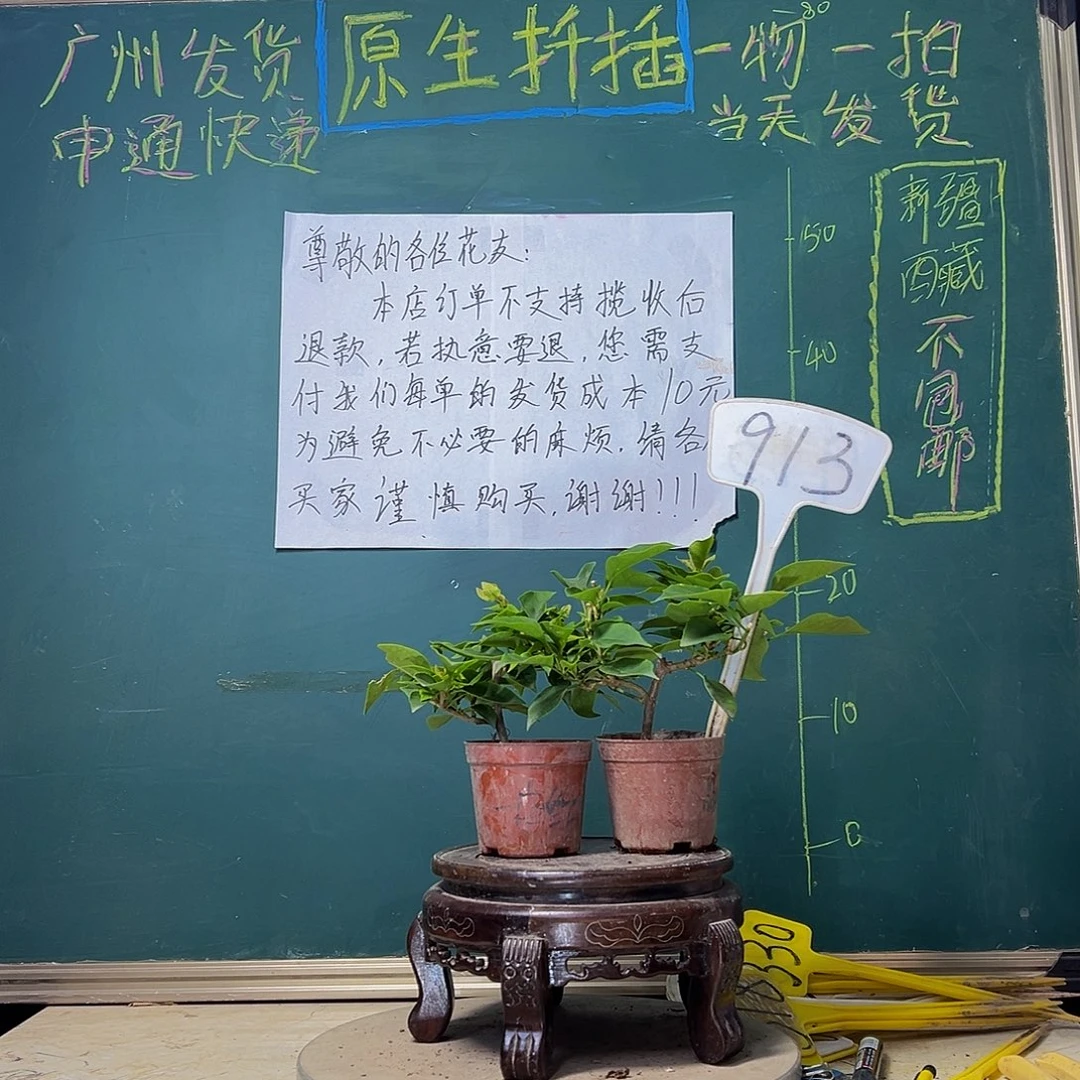 广州发货
原生扦插
一物一拍
80
申通快递
当天发货
尊敬的各位花友:
本店订单不支持揽收后
退款,若执意要退,您需支
付我们每单的发货成本10元
为避免不必要的麻烦,请各
买家谨慎购买,谢谢!!!
913
50
40
20
10
0
新疆
西藏
不
包
邮
330